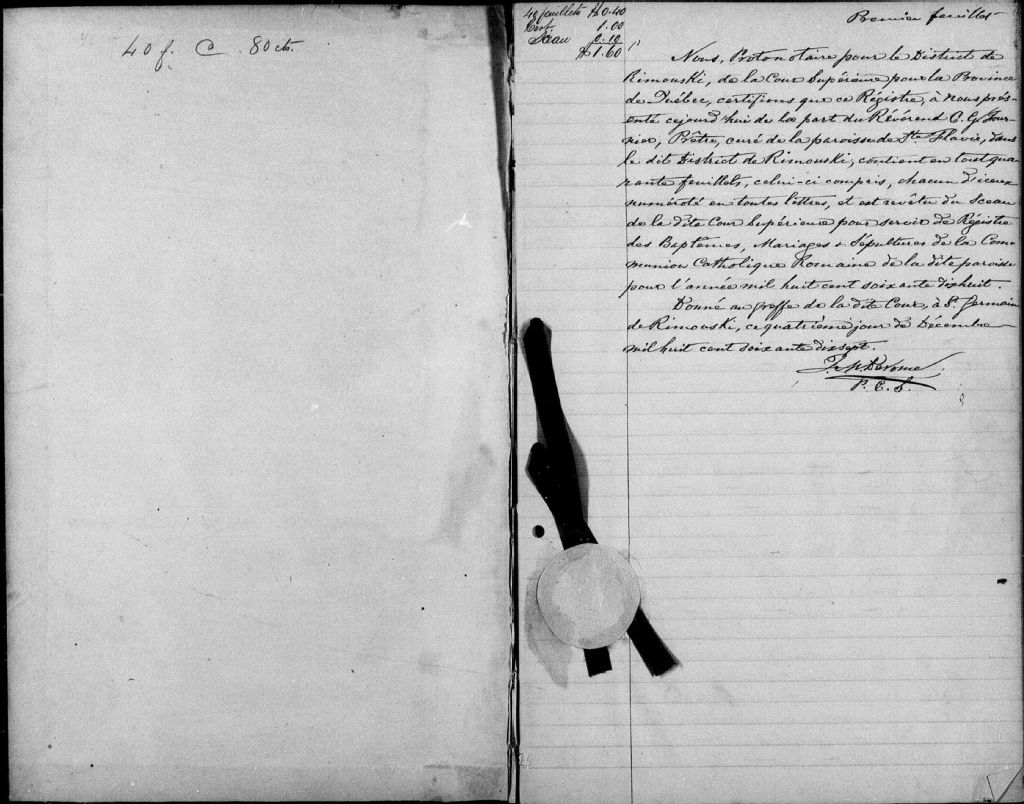 40 f. C 80 cts.
40 feuillets $0.40
Cert. 1.00
Sceau 0.20
$1.60
Premier feuillet
Nous, Protonotaire pour le District de
Rimouski, de la Cour Supérieure pour la Province
de Québec, certifions que ce Régistre, à nous prés-
enté cejourd'hui de la part du Révérend C. G. Four-
nier, Prêtre, curé de la paroisse de Ste Flavie, dans
le dit District de Rimouski, contient en tout qua
rante feuillets, celui-ci compris, chacun d'iceux
numéroté en toutes lettres, et est revêtu du Sceau
de la dite Cour Supérieure pour servir de Régistre
des Baptêmes, Mariages & Sépultures de la Com-
munion Catholique Romaine de la dite paroisse
pour l'année mil huit cent soixante dixhuit.
Donné au greffe de la dite Cour, à St. Germain
de Rimouski, ce quatrième jour de Décembre
mil huit cent soixante dixsept.
Derome
P. C. S.